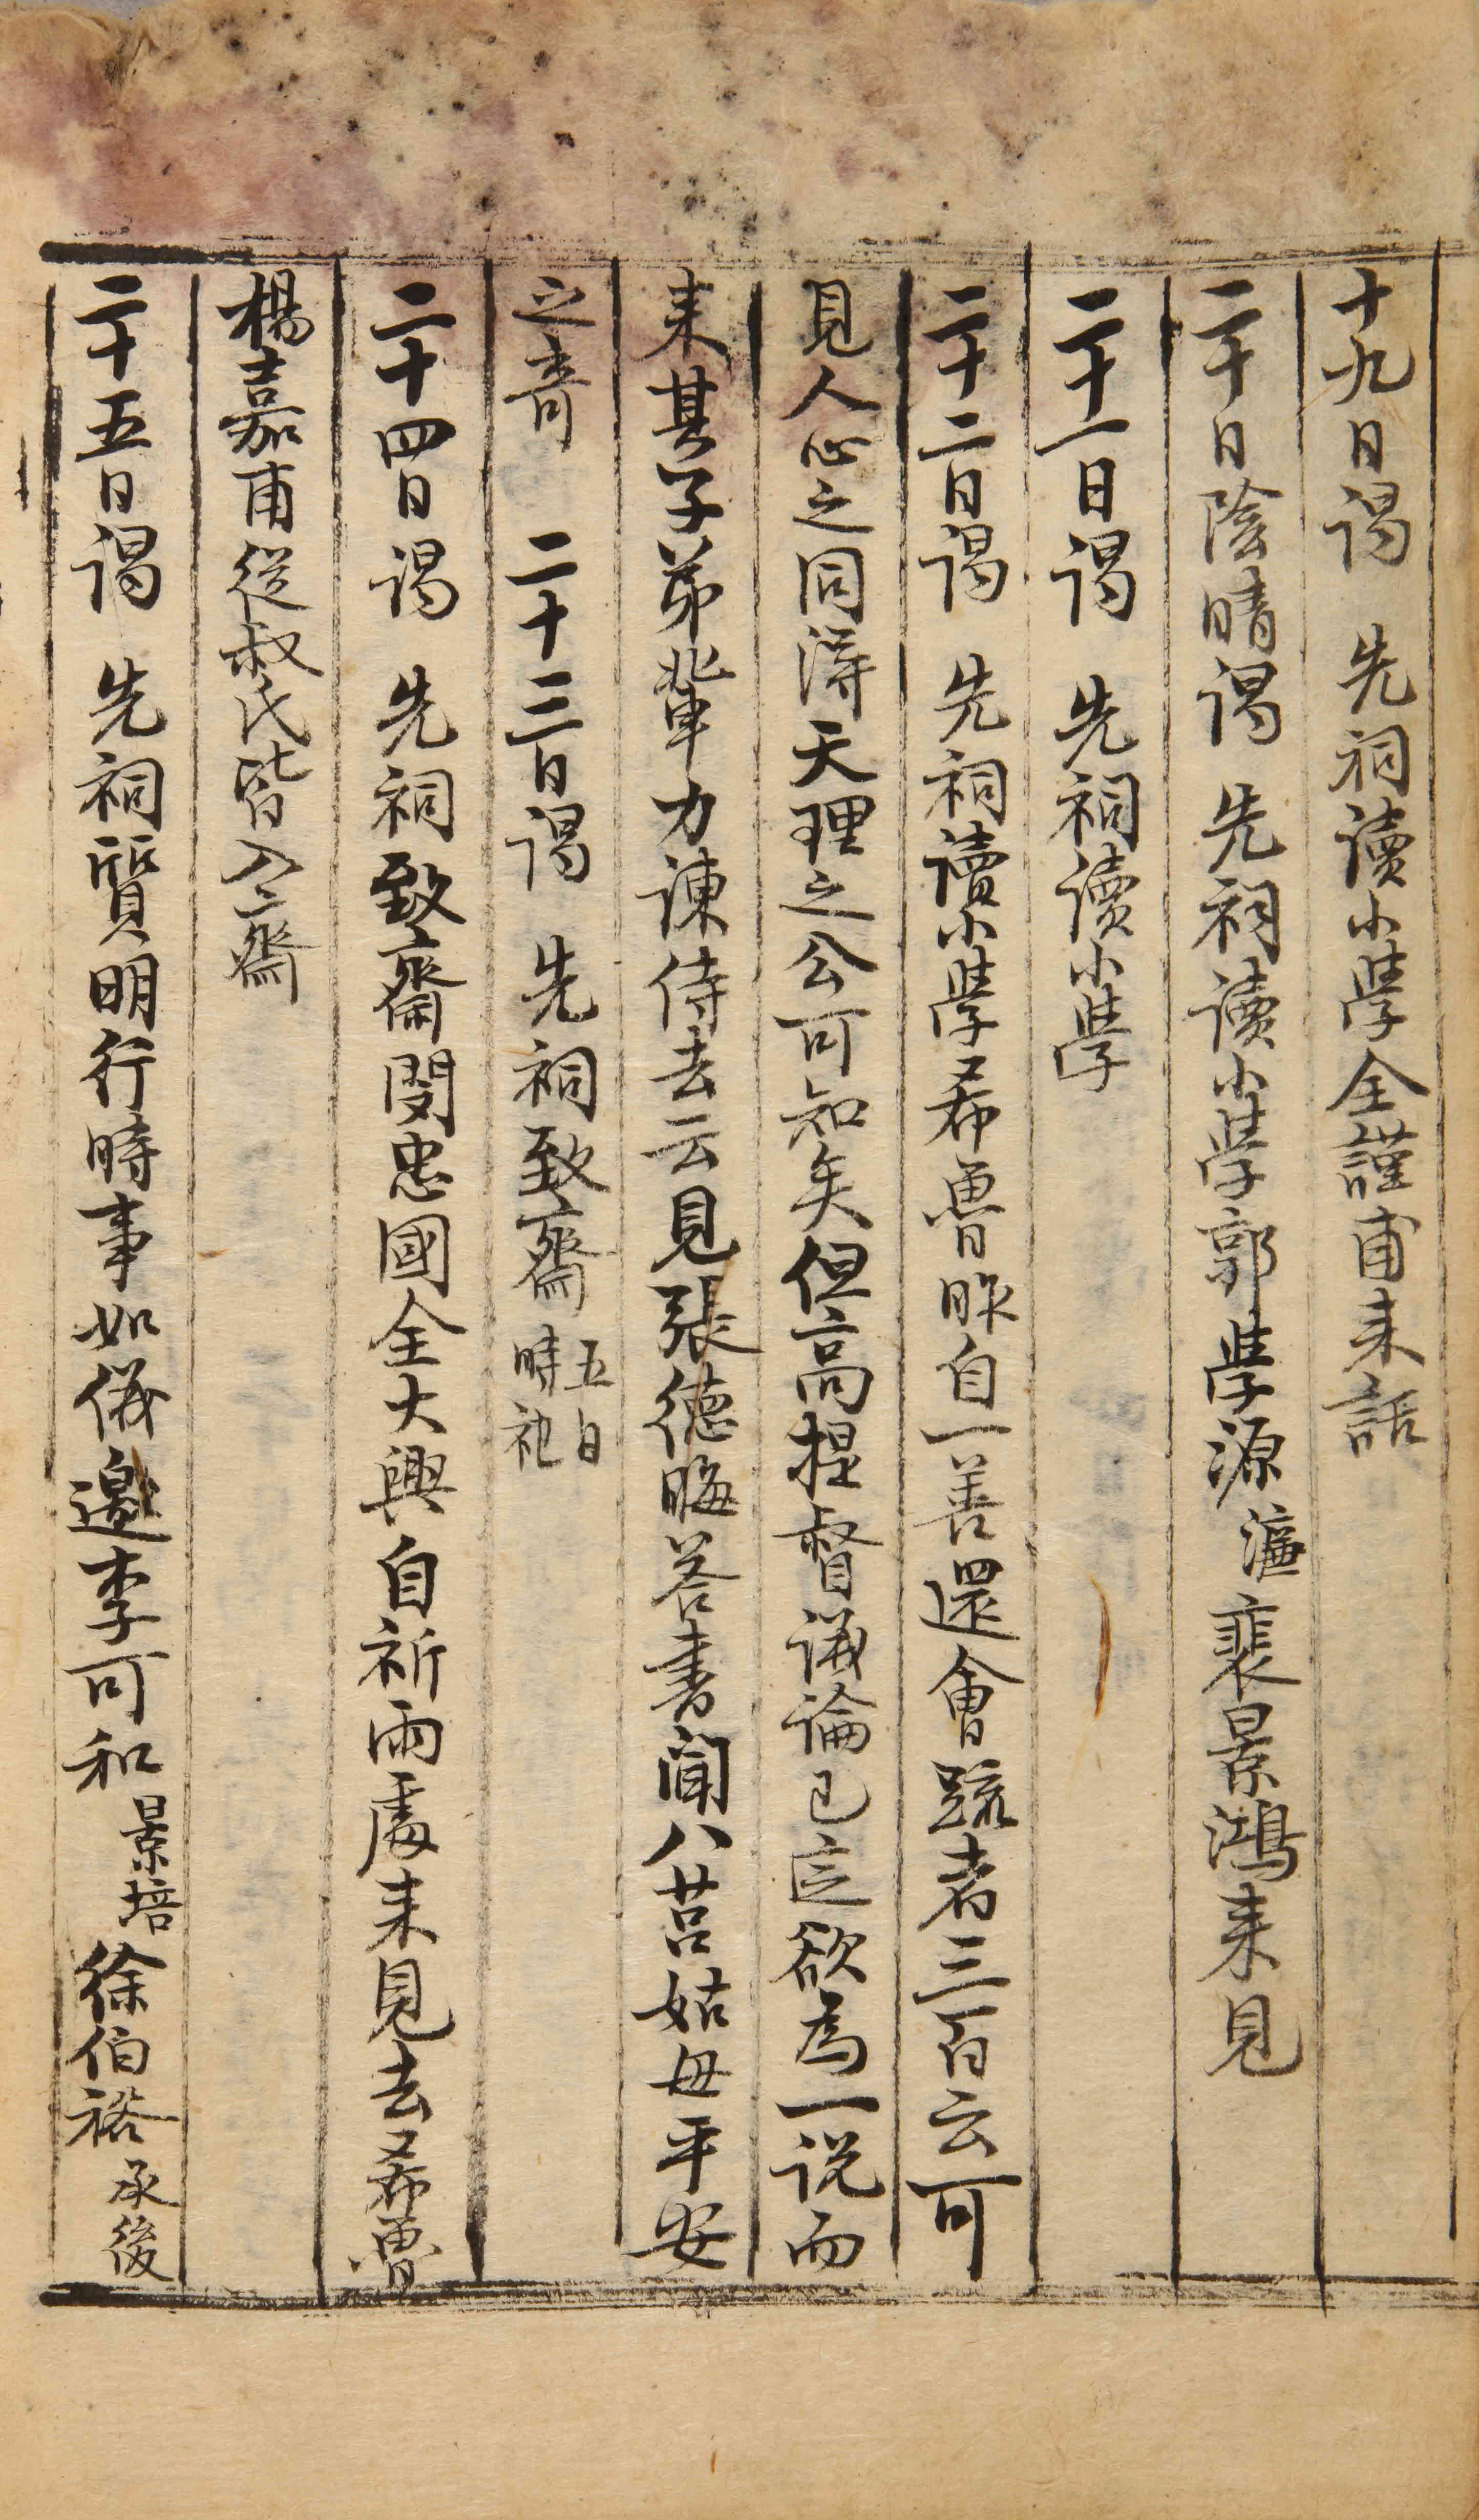 十九日謁　先祠讀小學全謹甫来話
二十日陰晴謁　先祠讀小學郭學源濂裴景鴻来見
二十一日謁　先祠讀小學
二十二日謁　先祠讀小學希曾昨自一善還會疏者三百云可
見人心之同得天理之公可知矣但高提督議論已定欲為一説而
来其子弟輩力諫侍去云見張德晦答書聞八莒姑母平安
之音　二十三日謁　先祠致齋五日時祀
二十四日謁　先祠致齋閔忠國全大興自祈雨處来見去希曾
楊嘉甫從叔氏皆入齋
二十五日謁　先祠質明行時事如儀邀李可和景培徐伯裕承後